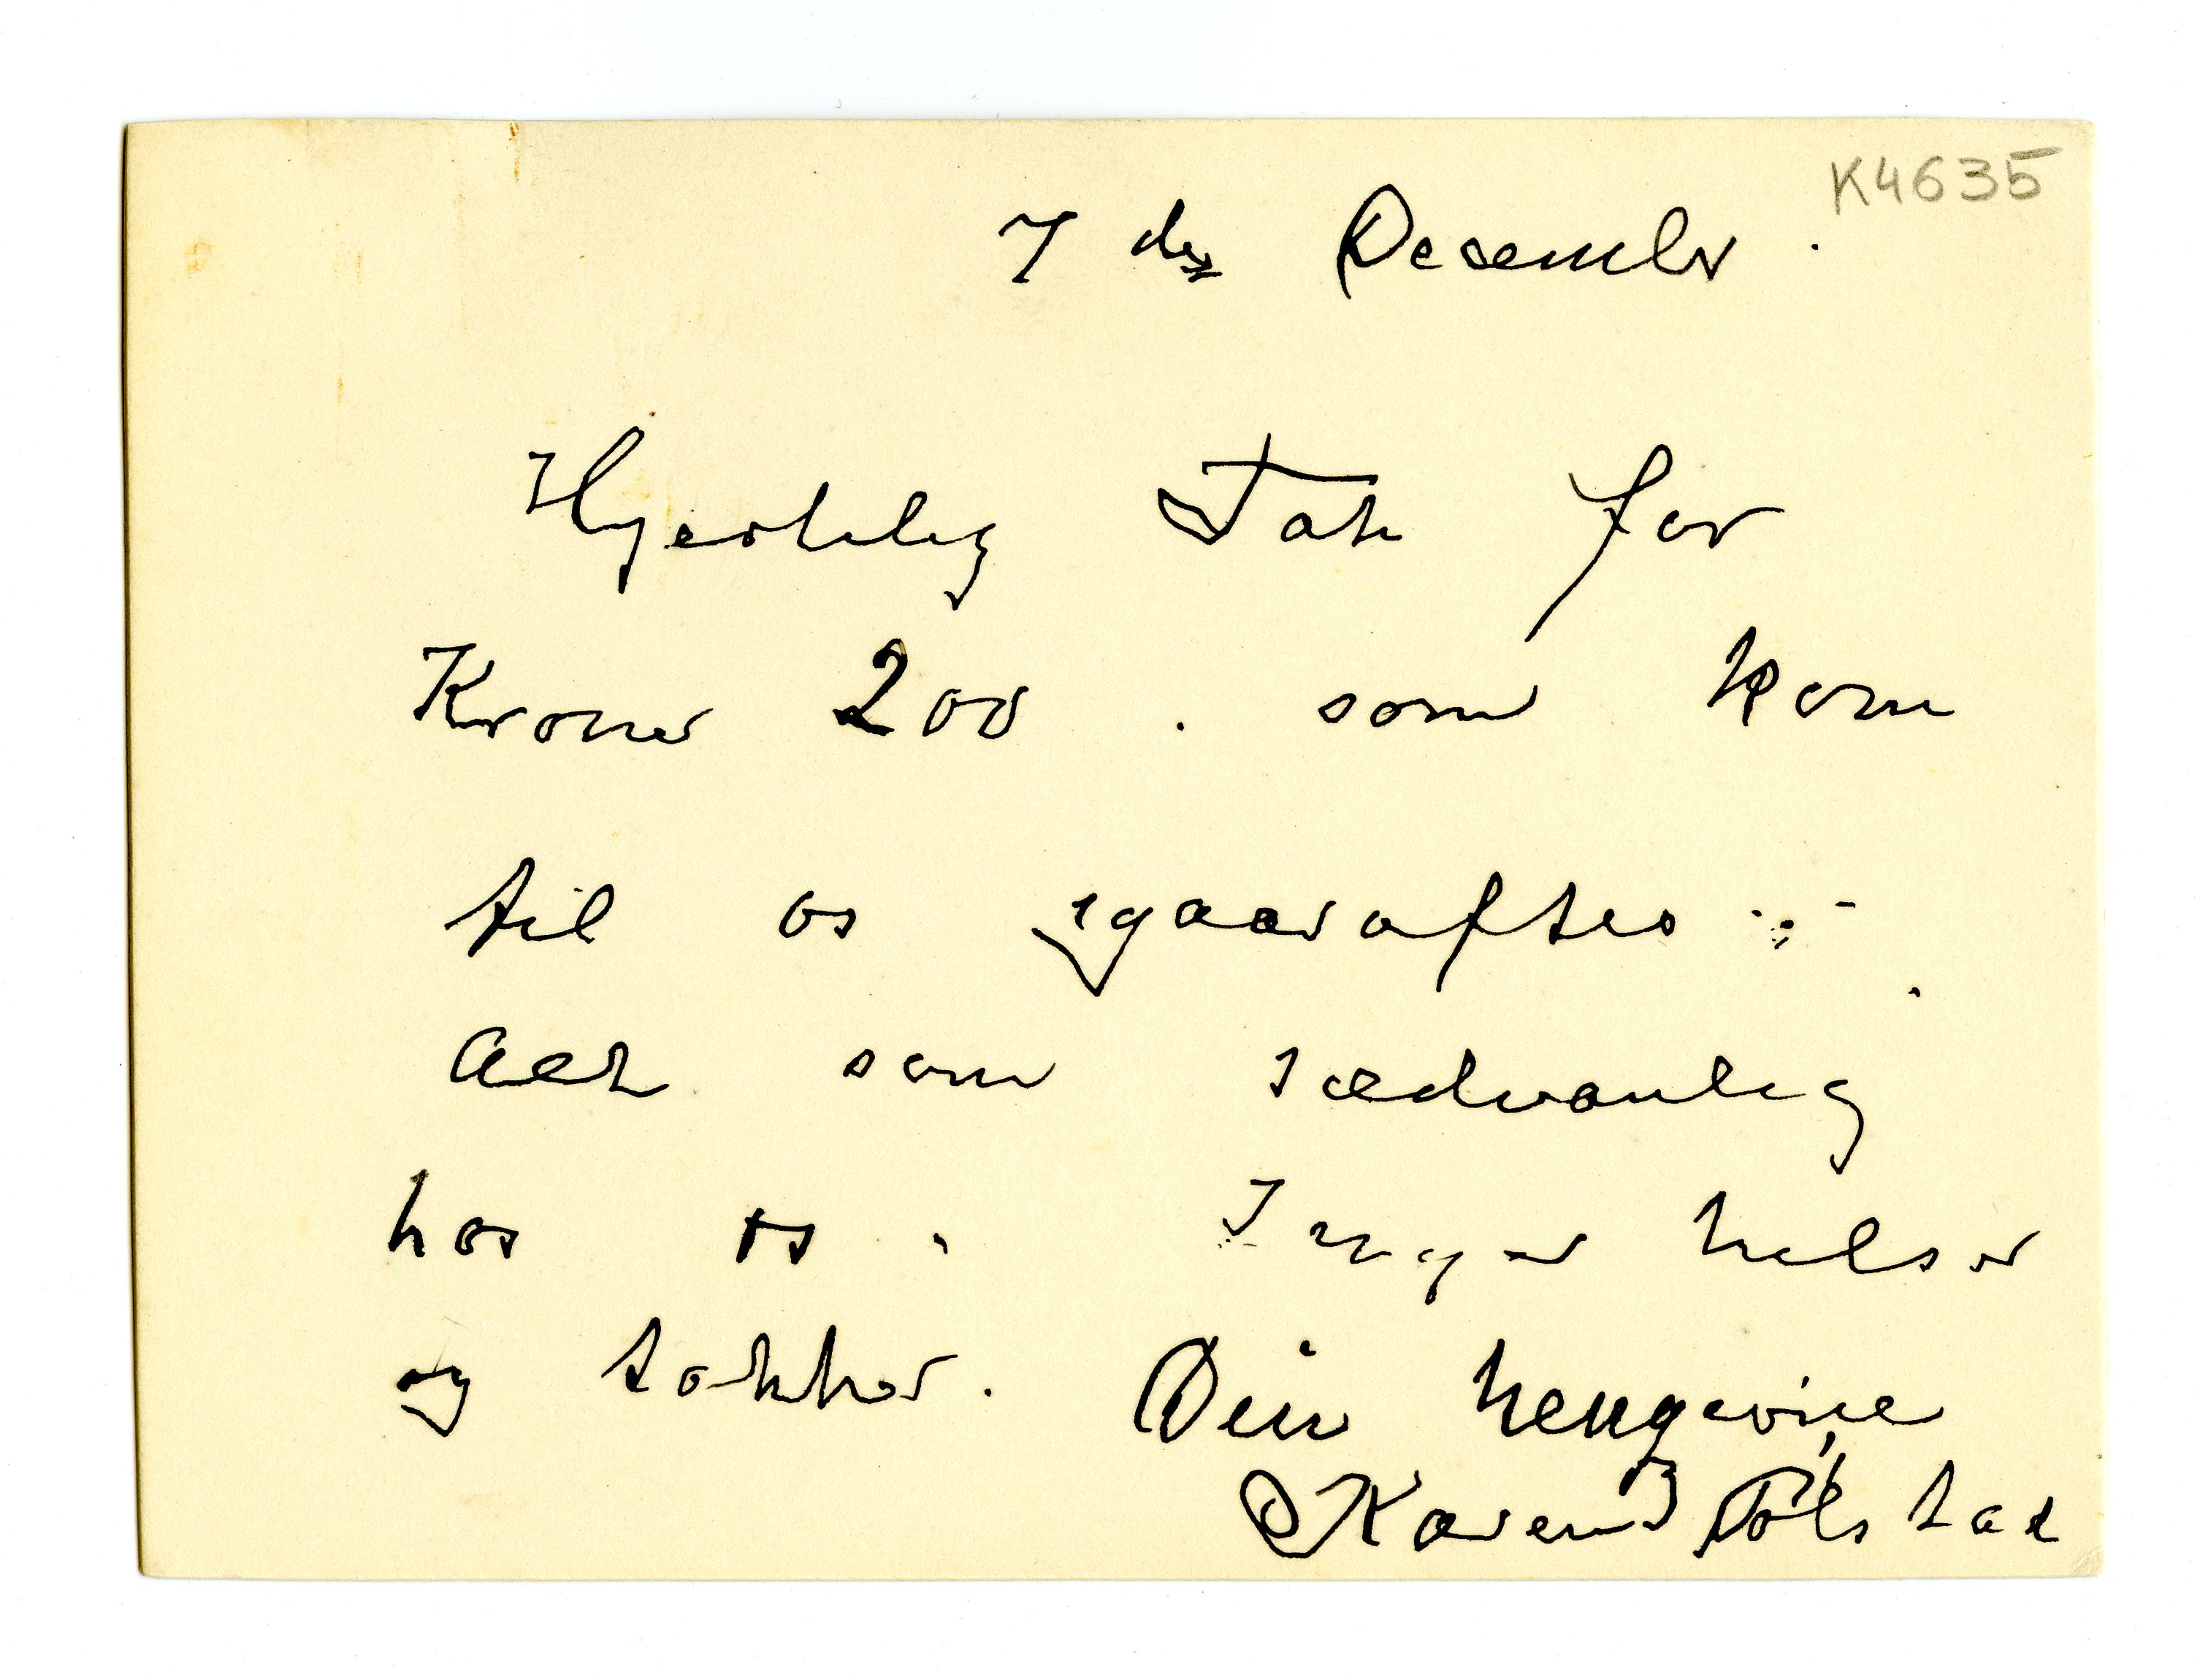 K4635
7 de Desember.
Hjertelig Tak for
Kroner 200. som kom
til os igaaraftes
Alt som sædvanlig
hos os. Inger hilser
og takker. Din hengivne
Karen Bølstad